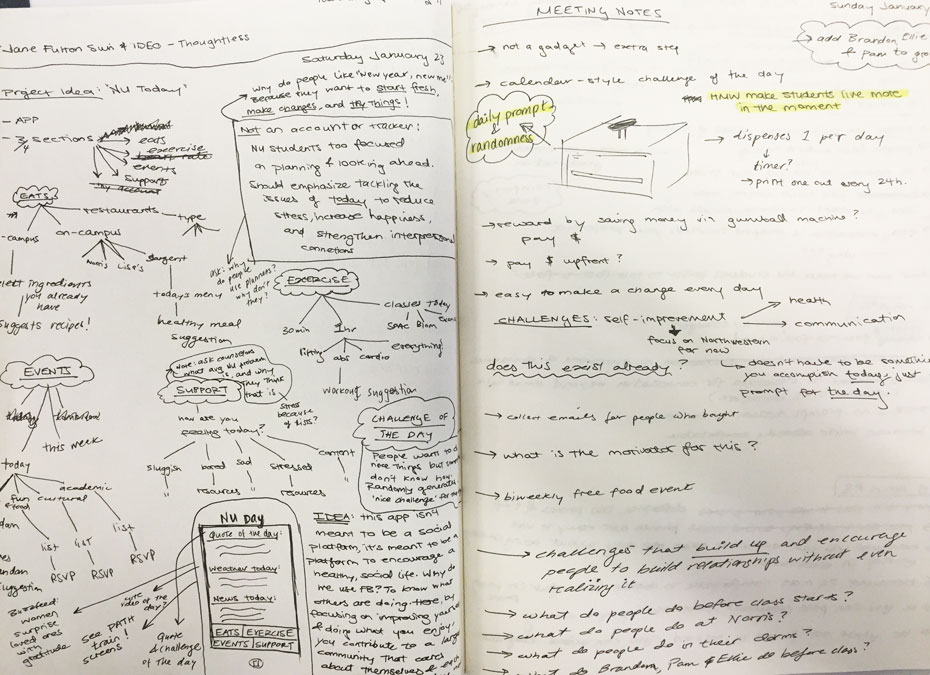 Jane Fulton Suri & IDEO - Thoughtless
Saturday January 23
Project Idea: 'NU Today'
- APP
- 3/4 sections
eats
exercise
heart rate
events
support
my account
why do people like "new year, new me"?
because they want to start fresh,
make changes, and try things!
Not an account or tracker:
NU students too focused
on planning & looking ahead.
Should emphasize tackling the
issues of today to reduce
stress, increase happiness,
and strengthen interpersonal
connections
ask: why
do people
use planners?
why don't
they?
EATS
restaurants
type
-campus
on-campus
Norris Lisa's Sargent
select ingredients
you already
have
suggests recipe!
today's menu
healthy meal
suggestion
EXERCISE
30min 1hr
classes today
SPAC Blom
lifting abs cardio everything!
workout suggestion
EVENTS
this week
today
fun
& food
cultural
academic
list list
RSVP RSVP RSVP
Note: ask counselors
what avg NU problem
is and why
they think
that is
SUPPORT
how are you
feeling today?
stress
because
of lists?
sluggish bored sad stressed content
" resources " resources "
CHALLENGE OF
THE DAY
People want to do
nice things but
don't know how.
Randomly generated
'nice challenge' for
NU DAY
Quote of the day:
Weather today:
News today:
EATS EXERCISE
EVENTS SUPPORT
Buzzfeed:
women
surprise
loved ones
with
gratitude
cute
video of the
day?
see PATH
train!
screens
Quote
& challenge
of the day
IDEA: this app isn't
meant to be a social
platform, it's meant to be a
platform to encourage a
healthy, social life. Why do
we use FB? To know what
others are doing. Here, by
focusing on improving yourself
& doing what you enjoy,
you contribute to a large
community that cares
about themselves &
MEETING NOTES
Sunday January
→ add Brandon, Ellie
& Pam to
→ not a gadget → extra step
→ calendar-style challenge of the day
HMW make students live more
in the moment
daily prompt
↓
randomness
→ dispenses 1 per day
↓
timer?
→ print one out every 24h.
→ reward by saving money via gumball machine?
pay $
→ pay $ upfront?
→ easy to make a change every day
CHALLENGES: self-improvement
health
communication
focus on Northwestern
for now
does this exist already?
→ doesn't have to be something
you accomplish today; just
prompt for the day.
→ collect emails for people who bought
→ what is the motivator for this?
→ biweekly free food event
→ challenges that build up and encourage
people to build relationships without even
realizing it
→ what do people do before class starts?
→ what do people do at Norris?
→ what do people do in their dorms?
→ what do Brandon, Pam & Ellie do before class?